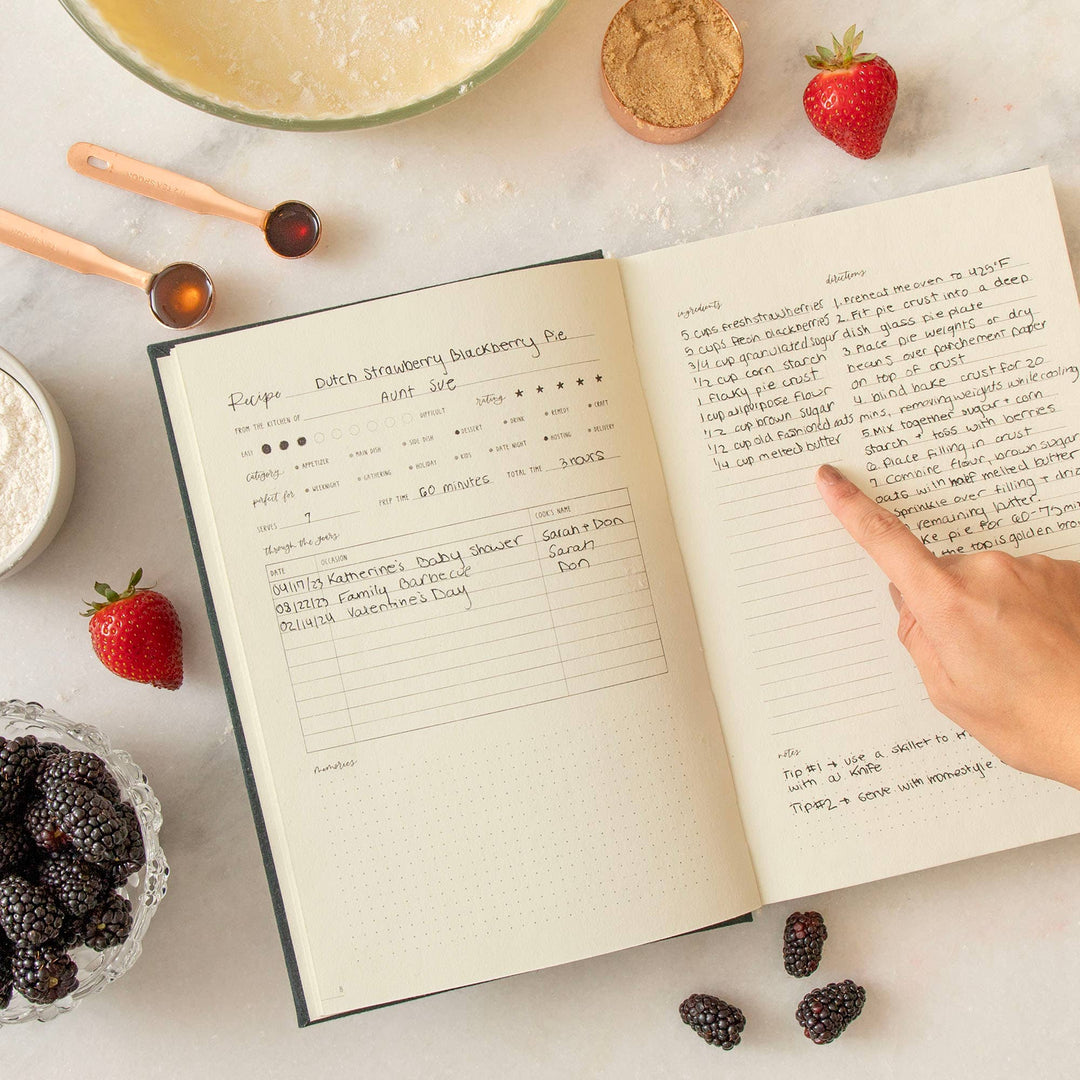 Recipe Dutch Strawberry Blackberry Pie
FROM THE KITCHEN OF Aunt Sue
EASY DIFFICULT
rating ★ ★ ★ ★ ★
category APPETIZER MAIN DISH SIDE DISH DESSERT DRINK REMEDY CRAFT
perfect for WEEKNIGHT GATHERING HOLIDAY KIDS DATE NIGHT HOSTING DELIVERY
SERVES 7 PREP TIME 60 minutes TOTAL TIME 3 hours
through the years
DATE OCCASION COOK'S NAME
04/17/23 Katherine's Baby shower Sarah + Don
08/22/23 Family Barbecue Sarah
02/14/24 Valentine's Day Don
memories
8
ingredients
5 cups fresh strawberries
5 cups blackberries
3/4 cup granulated sugar
1/2 cup corn starch
1 flaky pie crust
1 cup allpurpose flour
1/2 cup brown sugar
1/2 cup old fashioned oats
1/4 cup melted butter
directions
1. Preheat the oven to 425°F
2. Fit pie crust into a deep
dish glass pie plate
3. Place pie weights or dry
beans over parchement paper
on top of crust
4. blind bake crust for 20
mins, removing weights while cooling
5. Mix together sugar + corn
starch + toss with berries
Place filling in crust
7. Combine flour, brown sugar
oats with half melted butter
Sprinkle over filling +
remaining butter.
pie for 60-75
the top is golden
notes
Tip #1 → use a skillet to
with a knife
Tip #2 → Serve with homestyle